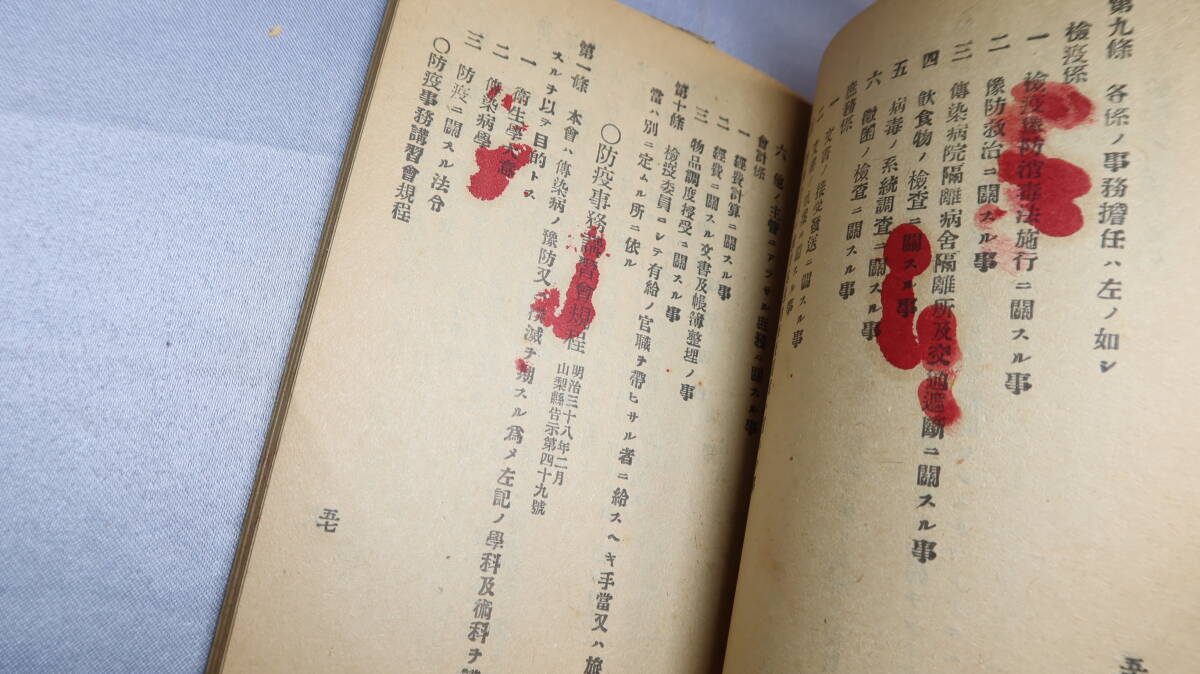 第九條 各係ノ事務擔任ハ左ノ如シ
檢疫係
一 檢疫豫防消毒法施行ニ關スル事
二 豫防救治ニ關スル事
三 傳染病院隔離病舍隔離所及交通遮斷ニ關スル事
四 飮食物ノ檢査ニ關スル事
五 病毒ノ系統調査ニ關スル事
六 黴菌ノ檢査ニ關スル事
庶務係
一 文書ノ接受發送ニ關スル事
二
六 他ノ主管ニアラサル庶務ニ關スル事
會計係
一 經費計算ニ關スル事
二 經費ニ關スル文書及帳簿整理ノ事
三 物品調度授受ニ關スル事
第十條 檢疫委員ニシテ有給ノ官職ヲ帶ヒサル者ニ給スヘキ手當又ハ旅
當ハ別ニ定ムル所ニ依ル
〇防疫事務講習會規程 明治三十八年二月
山梨縣告示第四十九號
第一條 本會ハ傳染病ノ豫防又ハ撲滅ヲ期スル爲メ左記ノ學科及術科ヲ
スルヲ以テ目的トス
一 衞生學大意
二 傳染病學
三 防疫ニ關スル法令
〇防疫事務講習會規程
五七
五